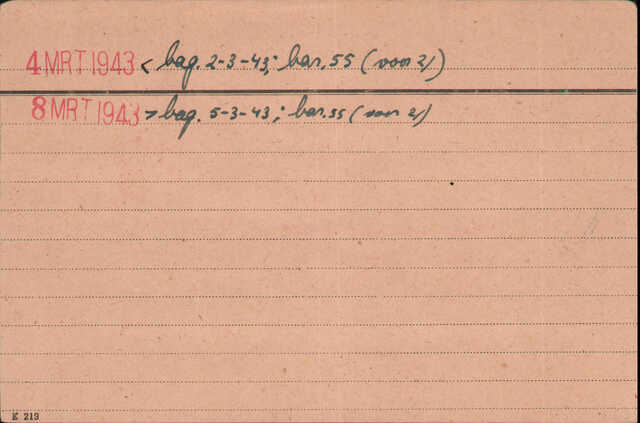 4 MRT 1943 < bag. 2-3-43; bar. 55 (voor 2/)
8 MRT 1943 > bag. 5-3-43; bar. 55 (voor 2/)
K 213